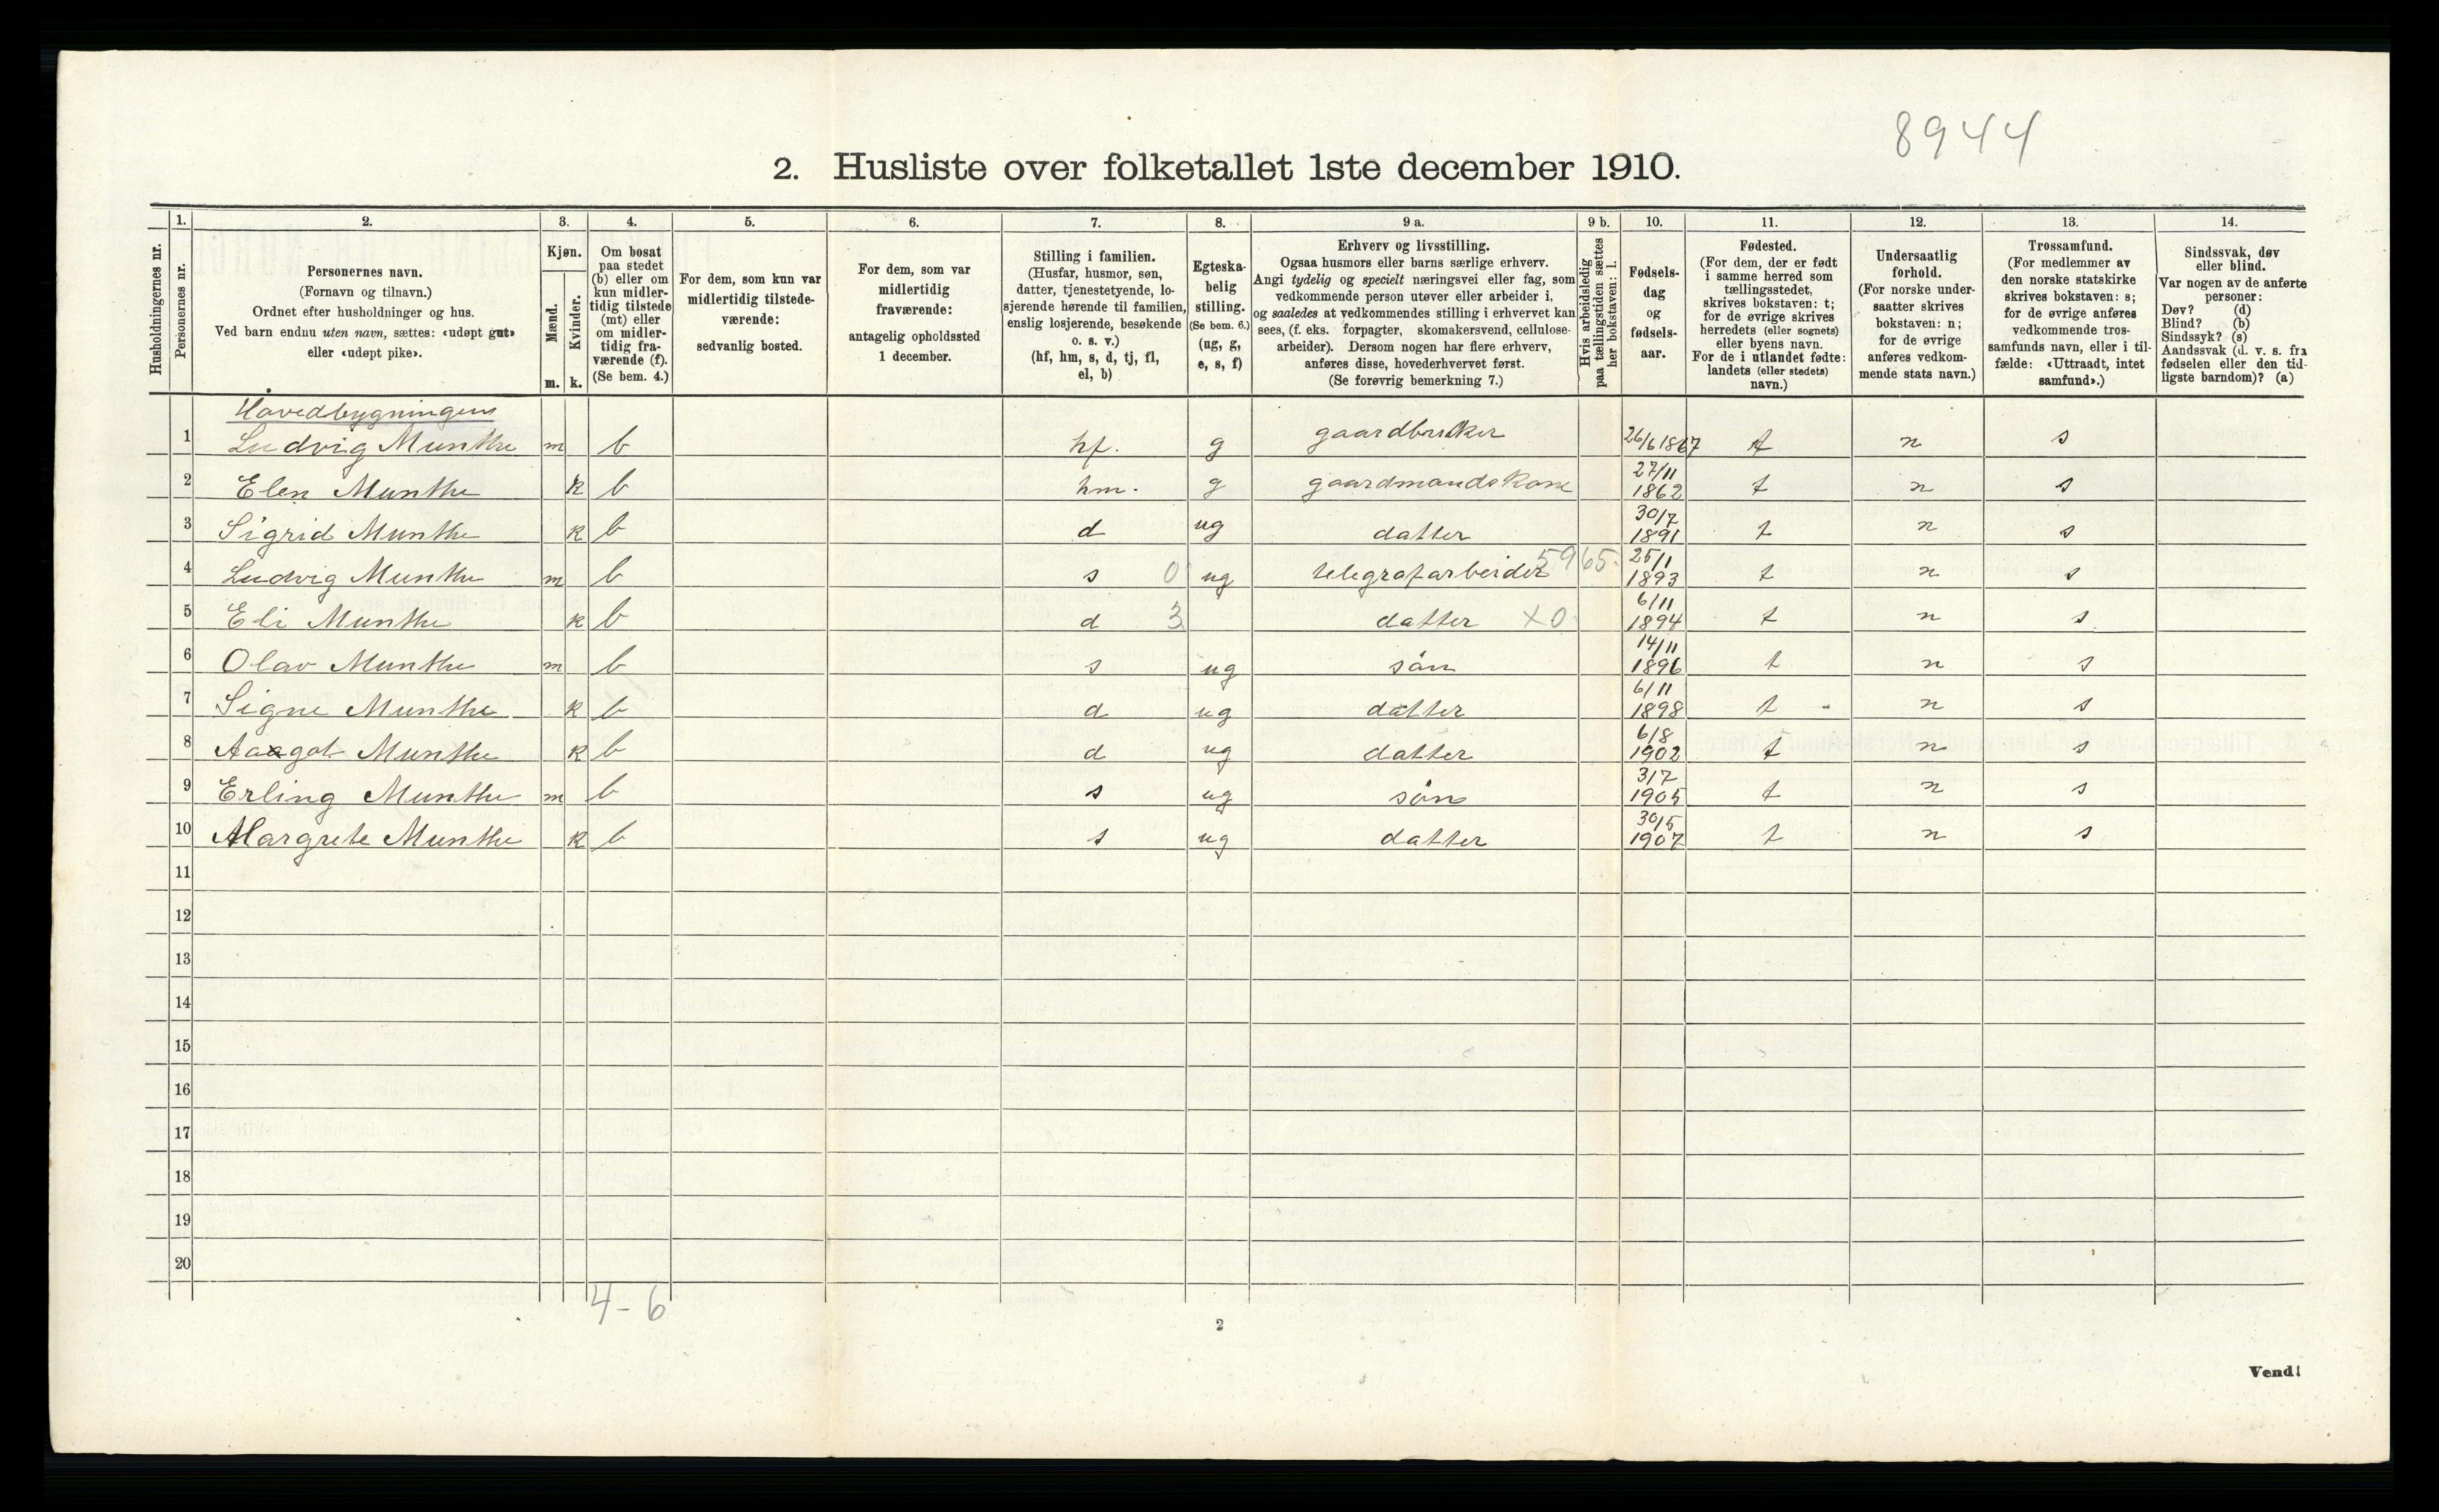 8944
2. Husliste over folketallet 1ste december 1910.
Husholdningernes nr.
1.
Personernes nr.
2.
Personernes navn.
(Fornavn og tilnavn.)
Ordnet efter husholdninger og hus.
Ved barn endnu uten navn, sættes: «udøpt gut»
eller «udøpt pike».
3.
Kjøn.
Mænd.
Kvinder.
m. k.
4.
Om bosat
paa stedet
(b) eller om
kun midler-
tidig tilstede
(mt) eller
om midler-
tidig fra-
værende (f).
(Se bem. 4.)
5.
For dem, som kun var
midlertidig tilstede-
værende:
sedvanlig bosted.
6.
For dem, som var
midlertidig
fraværende:
antagelig opholdssted
1 december.
7.
Stilling i familien.
(Husfar, husmor, søn,
datter, tjenestetyende, lo-
sjerende hørende til familien,
enslig losjerende, besøkende
o. s. v.)
(hf, hm, s, d, tj, fl,
el, b)
8.
Egteska-
belig
stilling.
(Se bem. 6.)
(ug, g,
e, s, f)
9 a.
Erhverv og livsstilling.
Ogsaa husmors eller barns særlige erhverv.
Angi tydelig og specielt næringsvei eller fag, som
vedkommende person utøver eller arbeider i,
og saaledes at vedkommendes stilling i erhvervet kan
sees, (f. eks. forpagter, skomakersvend, cellulose-
arbeider). Dersom nogen har flere erhverv,
anføres disse, hovederhvervet først.
(Se forøvrig bemerkning 7.)
9 b.
Hvis arbeidsledig
paa tællingstiden sættes
her bokstaven: l.
10.
Fødsels-
dag
og
fødsels-
aar.
11.
Fødested.
(For dem, der er født
i samme herred som
tællingsstedet,
skrives bokstaven: t;
for de øvrige skrives
herredets (eller sognets)
eller byens navn.
For de i utlandet fødte:
landets (eller stedets)
navn.)
12.
Undersaatlig
forhold.
(For norske under-
saatter skrives
bokstaven: n;
for de øvrige
anføres vedkom-
mende stats navn.)
13.
Trossamfund.
(For medlemmer av
den norske statskirke
skrives bokstaven: s;
for de øvrige anføres
vedkommende tros-
samfunds navn, eller i til-
fælde: «Uttraadt, intet
samfund».)
14.
Sindssvak, døv
eller blind.
Var nogen av de anførte
personer:
Døv? (d)
Blind? (b)
Sindssyk? (s)
Aandssvak (d. v. s. fra
fødselen eller den tid-
ligste barndom)? (a)
Hovedbygningen
1 Ludvig Munthe m b hf. g gaardbruker 26/6 1867 t n s
2 Elen Munthe k b hm. g gaardmandskone 27/11 1862 t n s
3 Sigrid Munthe k b d ug datter 30/7 1891 t n s
4 Ludvig Munthe m b s 0 ug telegrafarbeider 5965. 25/1 1893 t n s
5 Eli Munthe k b d 3 datter x0 6/11 1894 t n s
6 Olav Munthe m b s ug sön 14/11 1896 t n s
7 Signe Munthe k b d ug datter 6/11 1898 t n s
8 Aagot Munthe k b d ug datter 6/8 1902 t n s
9 Erling Munthe m b s ug sön 3/7 1905 t n s
10 Margrete Munthe k b s ug datter 30/5 1907 t n s
11
12
13
14
15
16
17
18
19
20
4-6
2
Vend!